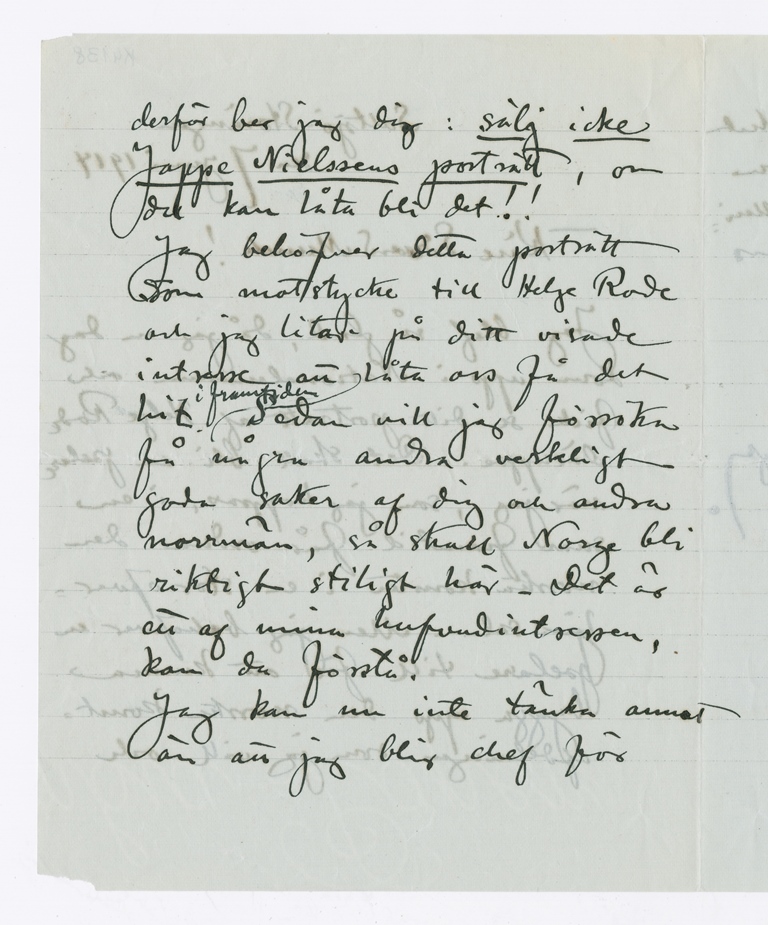 derför ber jag dig : sälj icke
Jappe Nielssens porträtt, om
du kan låta bli det!!
Jag behöfver detta porträtt
som motstycke till Helge Rode
och jag litar på ditt visade
intresse att låta oss få det
hit i framtiden. Sedan vill jag försöka
få några andra verkligt
goda saker af dig och andra
norrmän, så skall Norge bli
riktigt stiligt här – Det är
ett af mina hufvudintressen,
kan du förstå.
Jag kan nu inte tänka annat
än att jag blir chef för